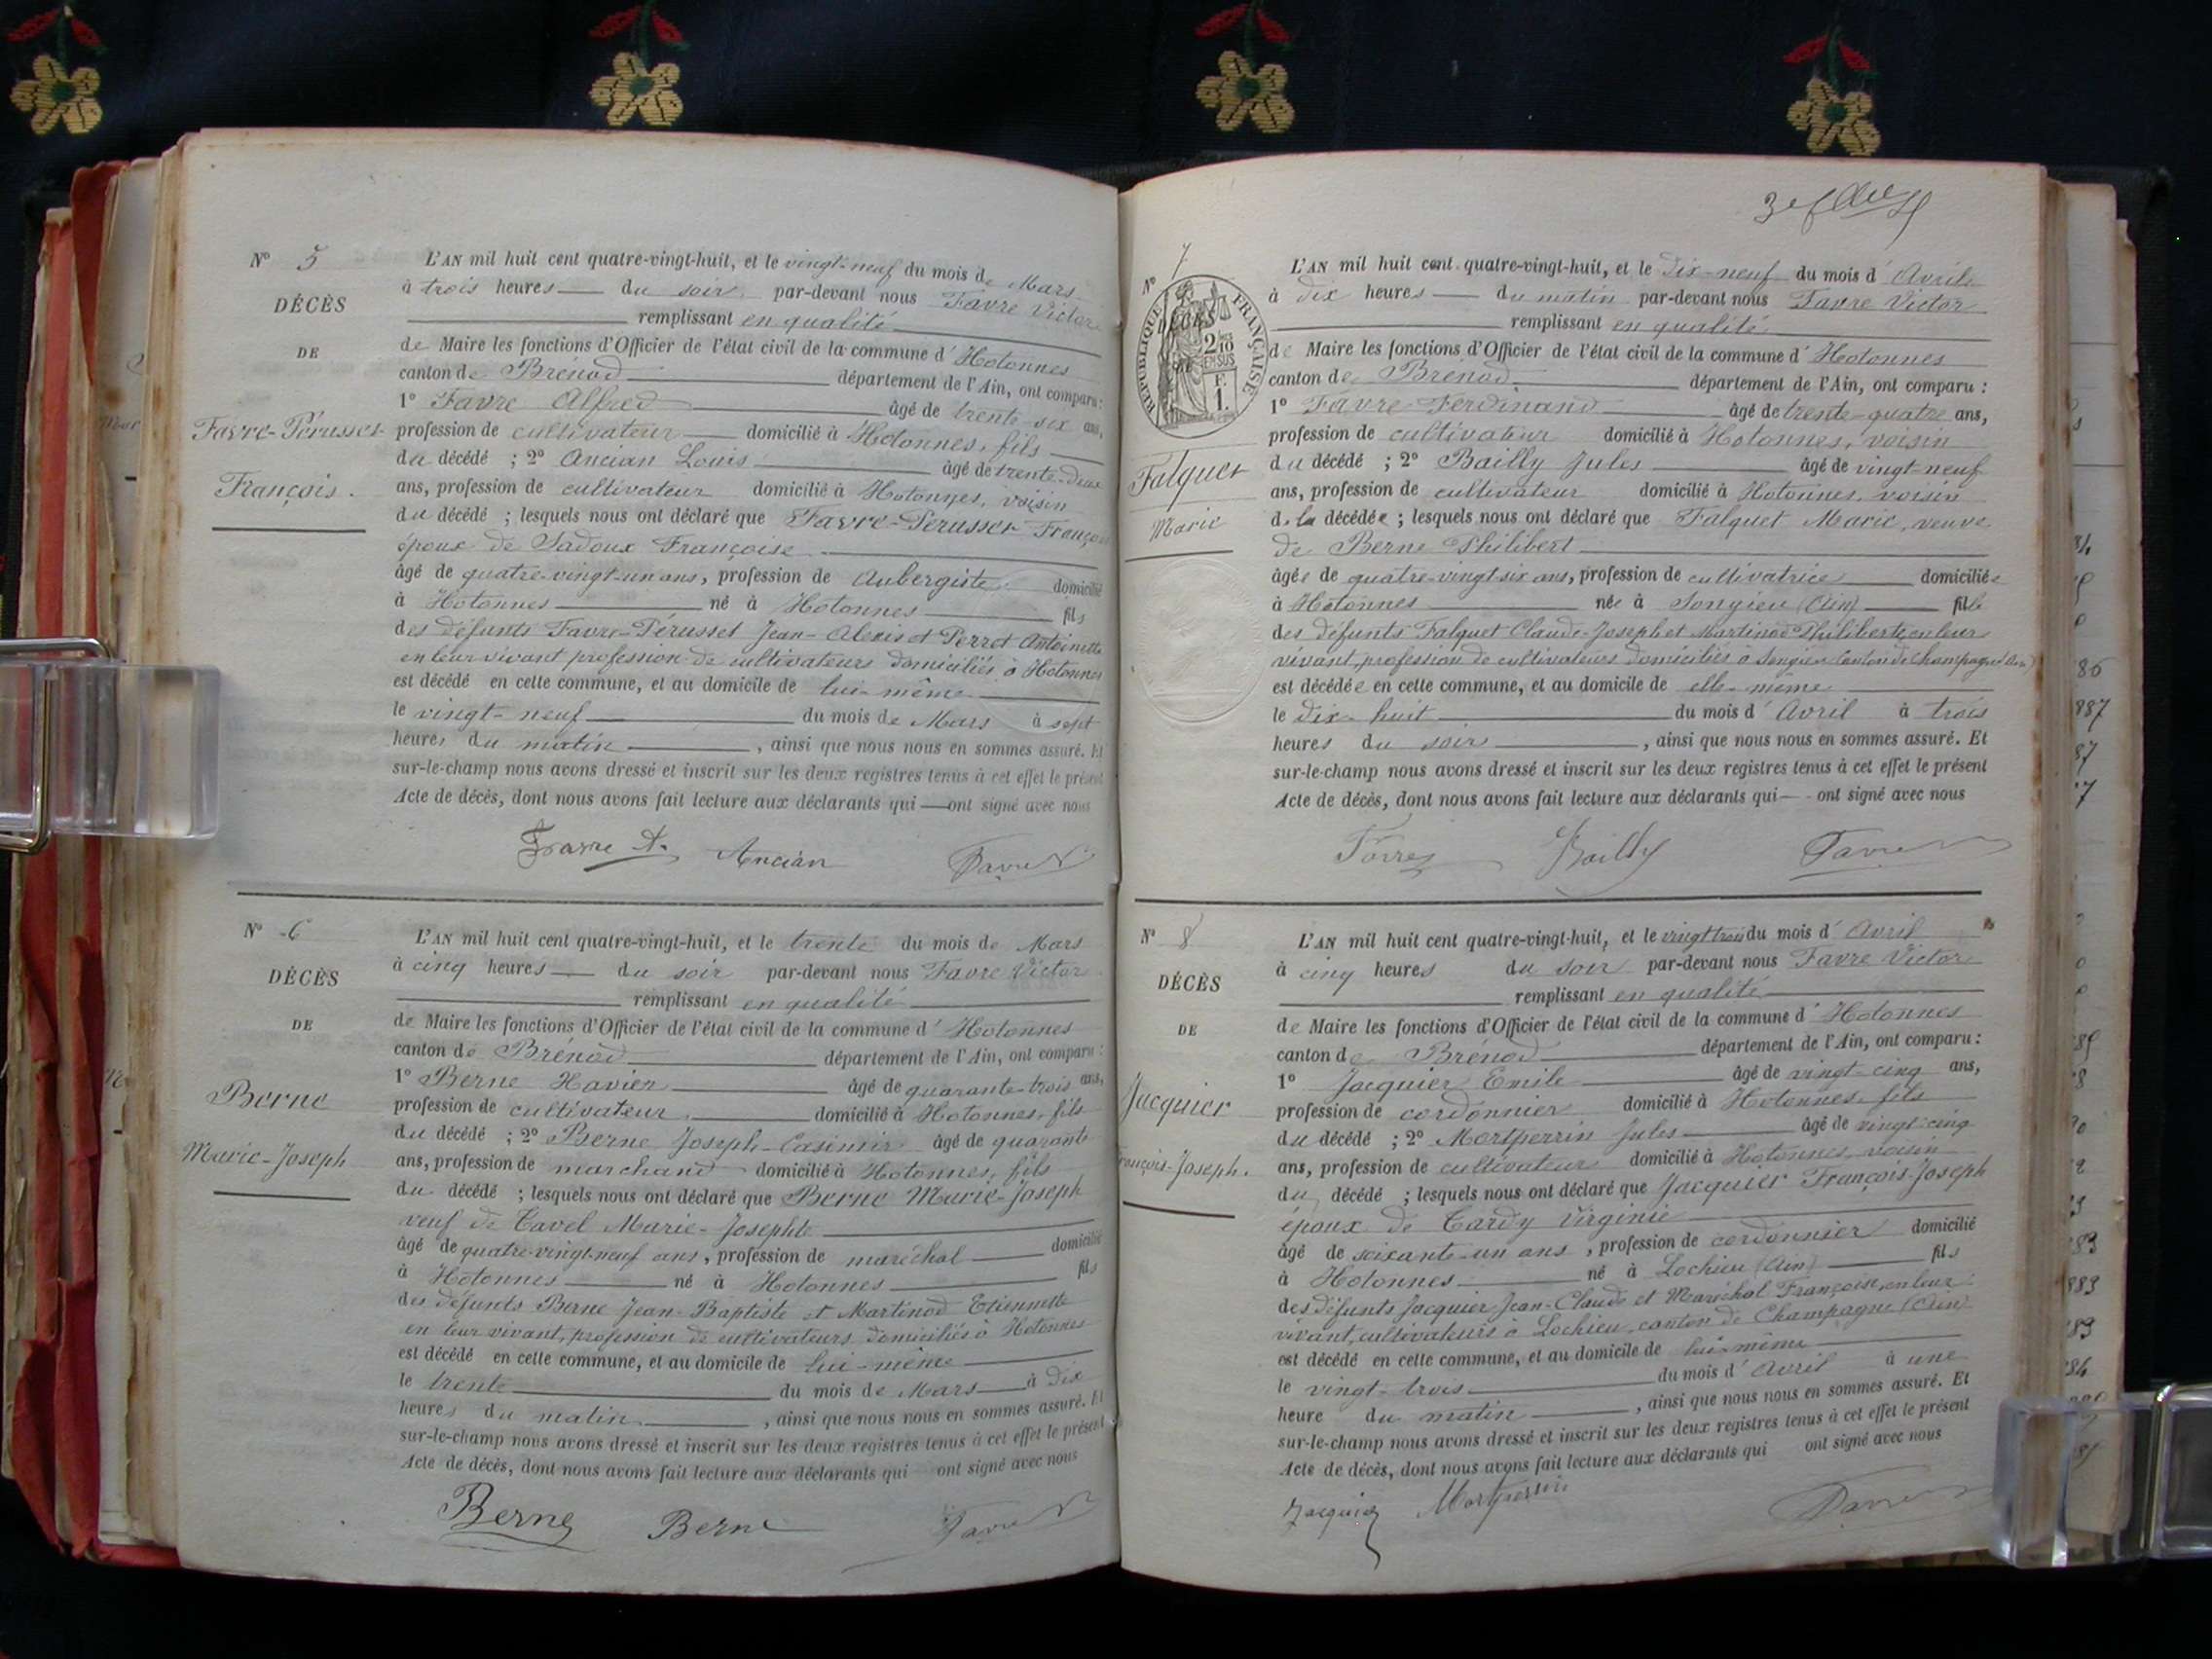 N° 5
DÉCÈS
DE
Favre-Pérusset
François.
L'AN mil huit cent quatre-vingt-huit, et le vingt-neuf du mois de Mars
à trois heures du soir, par-devant nous Favre Victor
remplissant en qualité
de Maire les fonctions d'Officier de l'état civil de la commune d'Hotonnes
canton de Brénod département de l'Ain, ont comparu :
1° Favre Alfred âgé de trente-six ans,
profession de cultivateur domicilié à Hotonnes, fils
du décédé ; 2° Ancian Louis âgé de trente-deux
ans, profession de cultivateur domicilié à Hotonnes, voisin
du décédé ; lesquels nous ont déclaré que Favre-Pérusset François
époux de Sadoux Françoise
âgé de quatre-vingt-un ans, profession de Aubergiste domicilié
à Hotonnes né à Hotonnes fils
des défunts Favre-Pérusset Jean-Alexis et Perret Antoinette
en leur vivant profession de cultivateurs domiciliés à Hotonnes
est décédé en cette commune, et au domicile de lui-même
le vingt-neuf du mois de Mars à sept
heures du matin, ainsi que nous nous en sommes assuré. Et
sur-le-champ nous avons dressé et inscrit sur les deux registres tenus à cet effet le présent
Acte de décès, dont nous avons fait lecture aux déclarants qui ont signé avec nous
Favre A. Ancian Favre V
N° 6
DÉCÈS
DE
Berne
Marie-Joseph
L'AN mil huit cent quatre-vingt-huit, et le trente du mois de Mars
à cinq heures du soir par-devant nous Favre Victor
remplissant en qualité
de Maire les fonctions d'Officier de l'état civil de la commune d'Hotonnes
canton de Brénod département de l'Ain, ont comparu :
1° Berne Xavier âgé de quarante-trois ans,
profession de cultivateur domicilié à Hotonnes, fils
du décédé ; 2° Berne Joseph-Casimir âgé de quarante
ans, profession de marchand domicilié à Hotonnes, fils
du décédé ; lesquels nous ont déclaré que Berne Marie-Joseph
veuf de Cavel Marie-Josephte
âgé de quatre-vingt-neuf ans, profession de maréchal domicilié
à Hotonnes né à Hotonnes fils
des défunts Berne Jean-Baptiste et Martinod Etiennette
en leur vivant, profession de cultivateurs domiciliés à Hotonnes
est décédé en cette commune, et au domicile de lui-même
le trente du mois de Mars à dix
heures du matin, ainsi que nous nous en sommes assuré. Et
sur-le-champ nous avons dressé et inscrit sur les deux registres tenus à cet effet le présent
Acte de décès, dont nous avons fait lecture aux déclarants qui ont signé avec nous
Berne Berne Favre V
N° 7
RÉPUBLIQUE FRANÇAISE
DÉCÈS
2/10 EN SUS
F. 1.
Falquet
Marie
L'AN mil huit cent quatre-vingt-huit, et le dix-neuf du mois d'Avril
à dix heures du matin par-devant nous Favre Victor
remplissant en qualité
de Maire les fonctions d'Officier de l'état civil de la commune d'Hotonnes
canton de Brénod département de l'Ain, ont comparu :
1° Favre Ferdinand âgé de trente-quatre ans,
profession de cultivateur domicilié à Hotonnes, voisin
du décédé ; 2° Bailly Jules âgé de vingt-neuf
ans, profession de cultivateur domicilié à Hotonnes, voisin
de la décédée ; lesquels nous ont déclaré que Falquet Marie, veuve
de Berne Philibert
âgée de quatre-vingt-six ans, profession de cultivatrice domiciliée
à Hotonnes née à Songieu (Ain) fille
des défunts Falquet Claude-Joseph et Martinod Philiberte, en leur
vivant, profession de cultivateurs domiciliés à Songieu Canton de Champagne (Ain)
est décédée en cette commune, et au domicile de elle-même
le dix-huit du mois d'Avril à trois
heures du soir, ainsi que nous nous en sommes assuré. Et
sur-le-champ nous avons dressé et inscrit sur les deux registres tenus à cet effet le présent
Acte de décès, dont nous avons fait lecture aux déclarants qui ont signé avec nous
Favre Bailly Favre V
N° 8
DÉCÈS
DE
Jacquier
François-Joseph.
L'AN mil huit cent quatre-vingt-huit, et le vingt trois du mois d'Avril
à cinq heures du soir par-devant nous Favre Victor
remplissant en qualité
de Maire les fonctions d'Officier de l'état civil de la commune d'Hotonnes
canton de Brénod département de l'Ain, ont comparu :
1° Jacquier Emile âgé de vingt-cinq ans,
profession de cordonnier domicilié à Hotonnes, fils
du décédé ; 2° Mortperrin Jules âgé de vingt-cinq
ans, profession de cultivateur domicilié à Hotonnes, voisin
du décédé ; lesquels nous ont déclaré que Jacquier François-Joseph
époux de Cardy Virginie
âgé de soixante-un ans, profession de cordonnier domicilié
à Hotonnes né à Lochieu (Ain) fils
des défunts Jacquier Jean-Claude et Maréchal Françoise, en leur
vivant, cultivateurs à Lochieu, canton de Champagne (Ain)
est décédé en cette commune, et au domicile de lui-même
le vingt-trois du mois d'Avril à une
heure du matin, ainsi que nous nous en sommes assuré. Et
sur-le-champ nous avons dressé et inscrit sur les deux registres tenus à cet effet le présent
Acte de décès, dont nous avons fait lecture aux déclarants qui ont signé avec nous
Jacquier Mortperrin Favre V